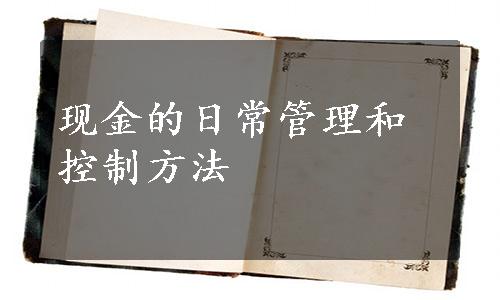 现金的日常管理和
控制方法